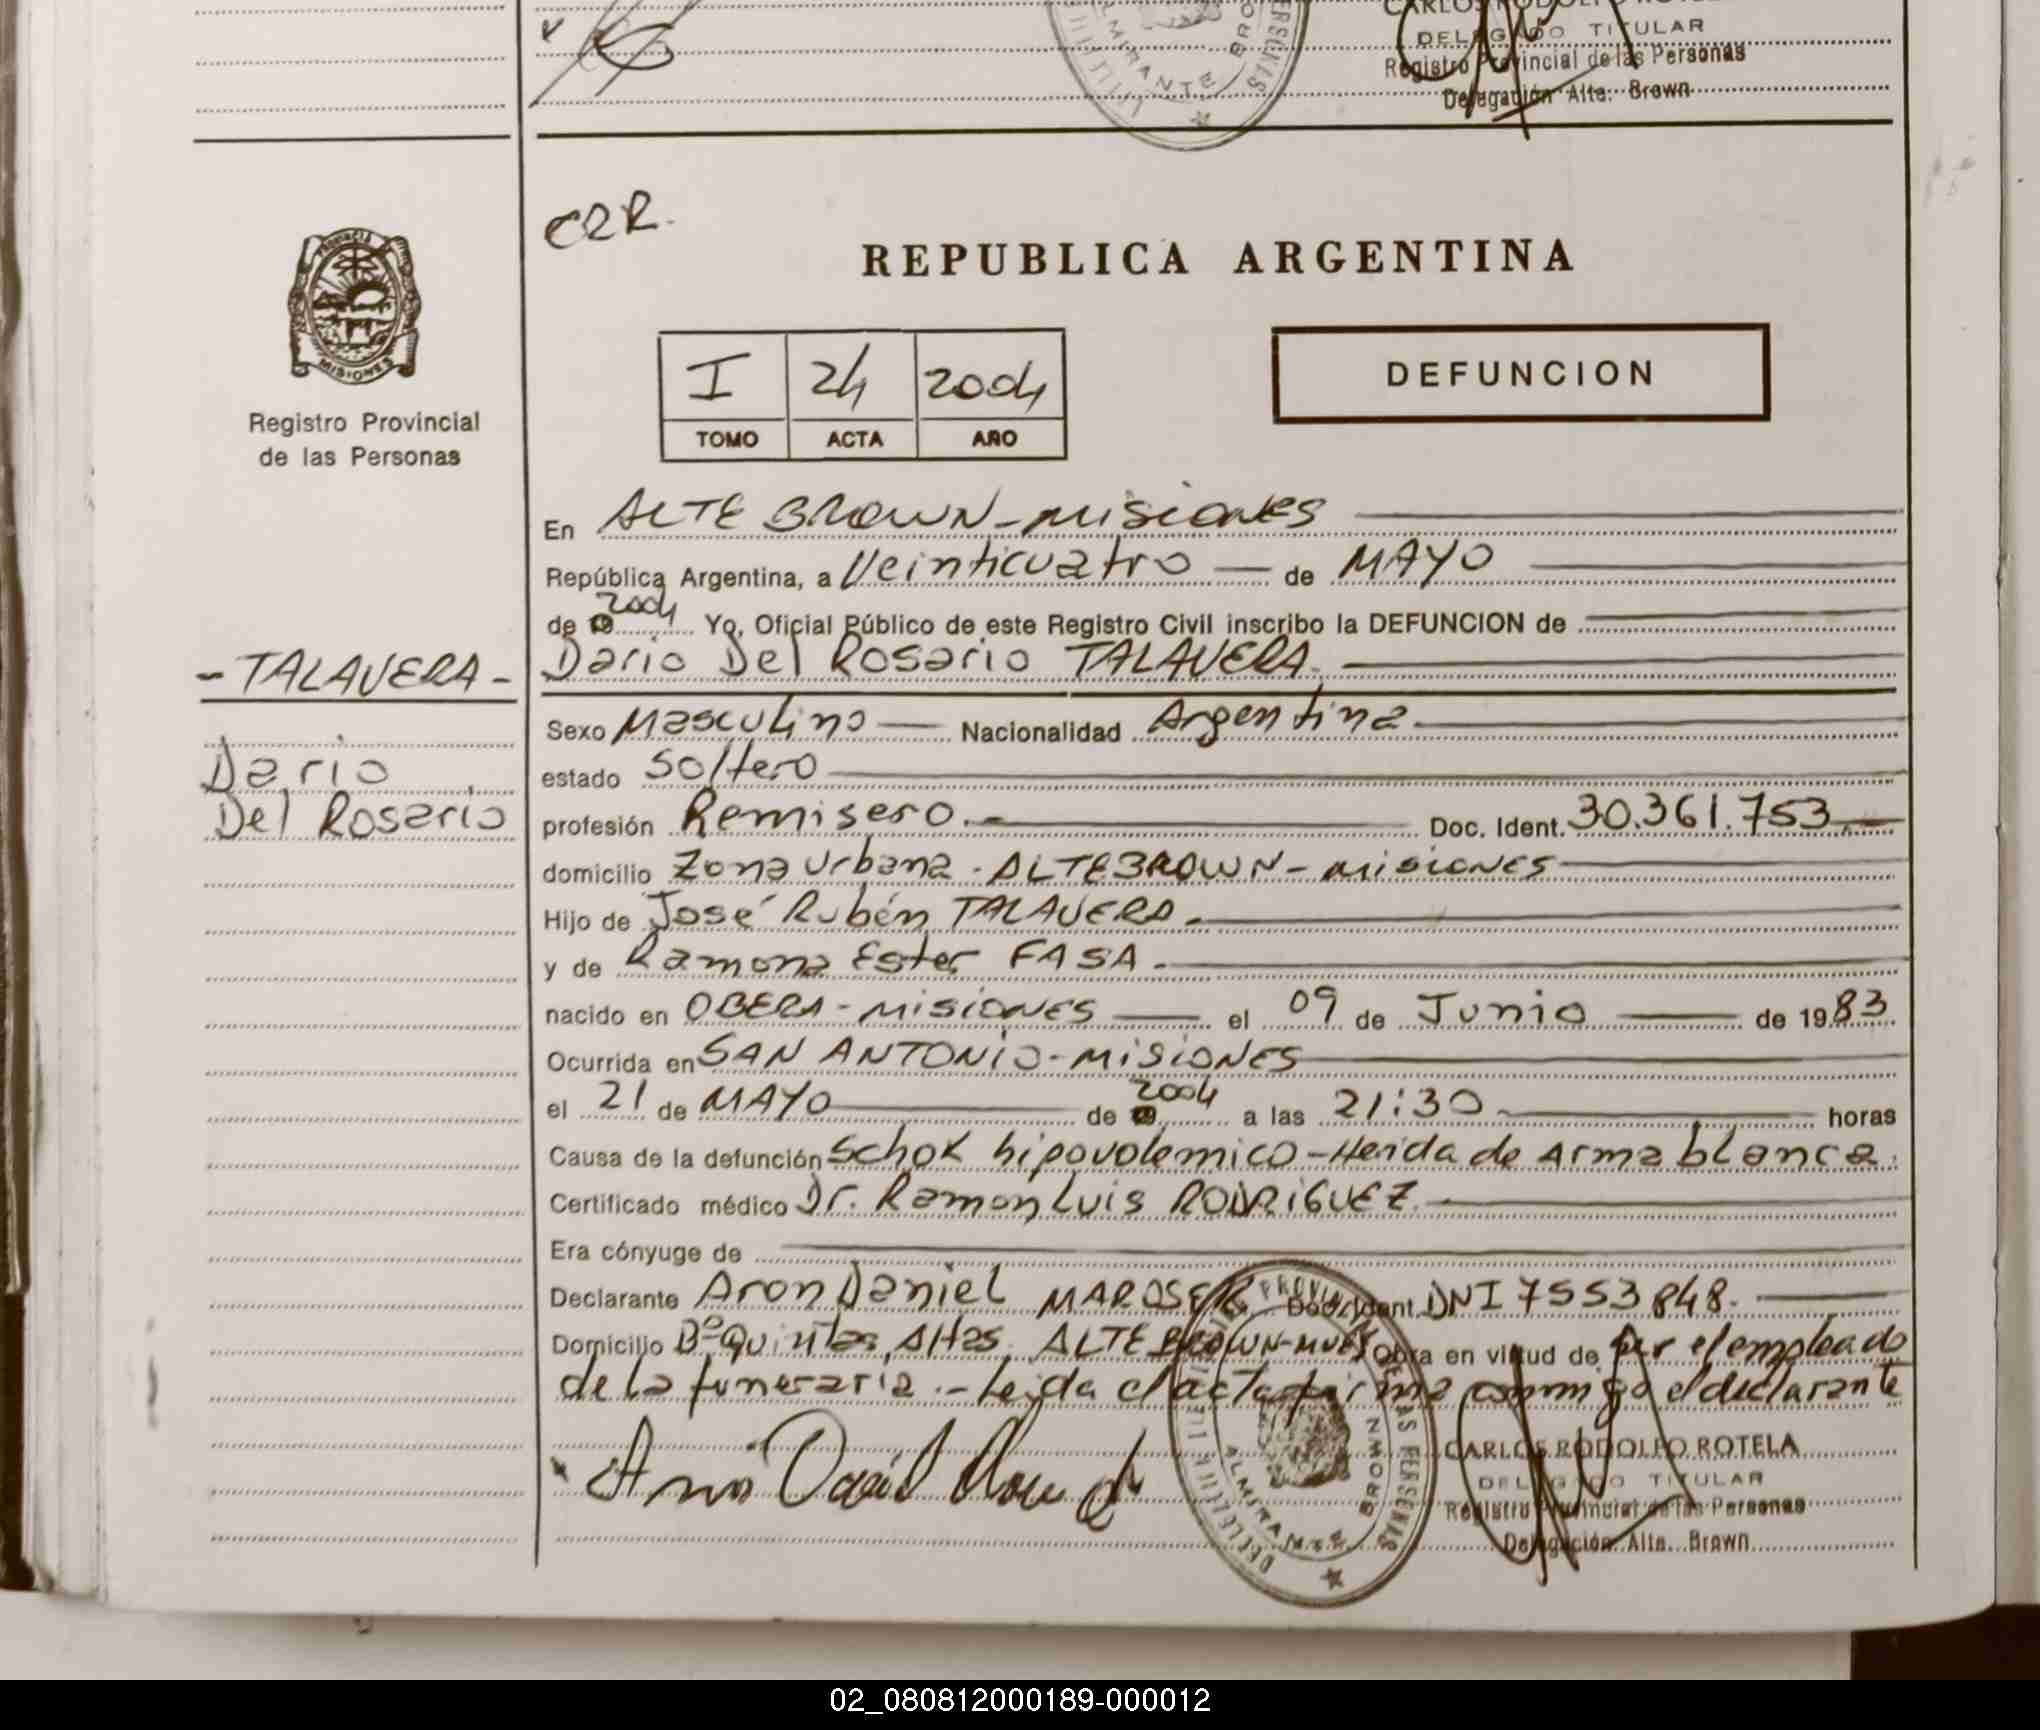 CARLOS RODOLFO ROTELA
DELEGADO TITULAR
Registro Provincial de las Personas
Delegación Alte. Brown
ALMIRANTE BRO
PROVINCIA
MISIONES
Registro Provincial
de las Personas
CRR.
REPUBLICA ARGENTINA
I 24 2004
TOMO ACTA AÑO
DEFUNCION
En ALTE BROWN-MISIONES
República Argentina, a Veinticuatro de MAYO
de 19 2004 Yo, Oficial Público de este Registro Civil inscribo la DEFUNCION de
Dario Del Rosario TALAVERA.
- TALAVERA -
Dario
Del Rosario
Sexo Masculino Nacionalidad Argentina
estado Soltero
profesión Remisero.- Doc. Ident. 30.361.753.-
domicilio Zona Urbana - ALTE BROWN - MISIONES
Hijo de José Rubén TALAVERA.
y de Ramona Ester FASA.
nacido en OBERA - MISIONES el 09 de Junio de 1983
Ocurrida en SAN ANTONIO - MISIONES
el 21 de MAYO de 19 2004 a las 21:30 horas
Causa de la defunción Schok hipovolemico - Herida de Arma blanca.
Certificado médico Dr. Ramon Luis RODRIGUEZ.
Era cónyuge de
Declarante Aron Daniel MAROSEK Doc. Ident. DNI 7553848.
Domicilio Bº Quintas Altas. ALTE BROWN-MNES Obra en virtud de ser el empleado
de la funeraria.- Leida el acta firma conmigo el declarante
CARLOS RODOLFO ROTELA
DELEGADO TITULAR
Registro Provincial de las Personas
Delegación Alte. Brown
ALMIRANTE BROWN
02_080812000189-000012